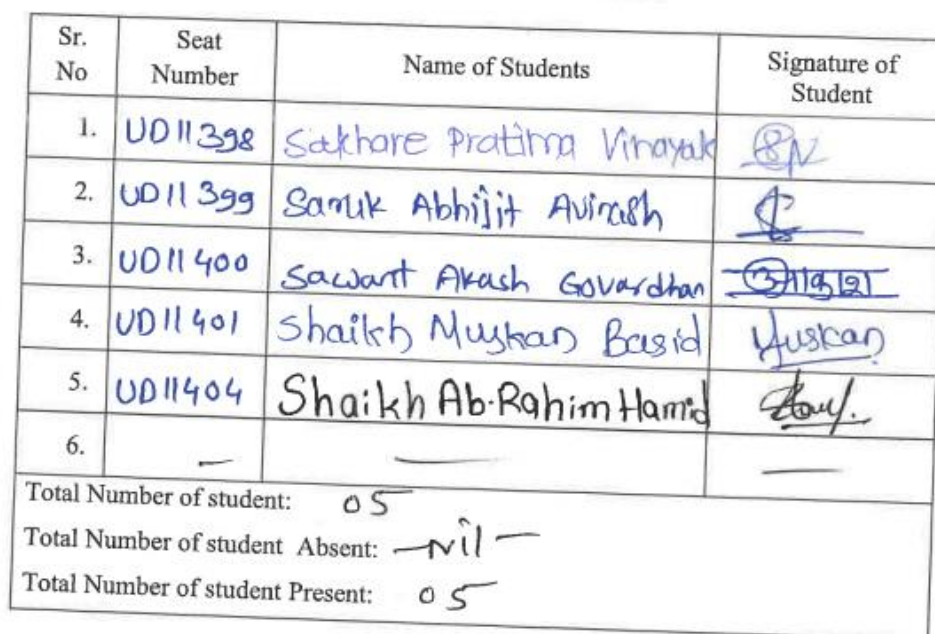 Sr. No Seat Number Name of Students Signature of Student
1. UD11398 Sakhare Pratima Vinayak
2. UD11399 Abhijit Avinash
3. UD11400 Sawant Akash Govardhan
4. UD11401 Shaikh Muskan Basid Muskan
5. UD11404 Shaikh Ab.Rahim Hamid
6. – — —
Total Number of student: 05
Total Number of student Absent: —Nil—
Total Number of student Present: 05